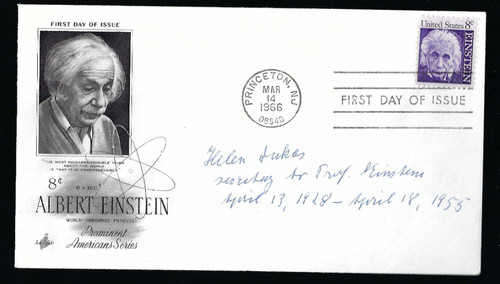 FIRST DAY OF ISSUE
United States 8¢
EINSTEIN
PRINCETON, NJ
MAR
14
1966
08540
FIRST DAY OF ISSUE
"THE MOST INCOMPREHENSIBLE THING
ABOUT THE WORLD
IS THAT IT IS COMPREHENSIBLE"
8¢
e = mc²
ALBERT EINSTEIN
WORLD RENOWNED PHYSICIST
Prominent
Americans Series
Helen Dukas
secretary to Prof. Einstein
April 13, 1928 – April 18, 1955